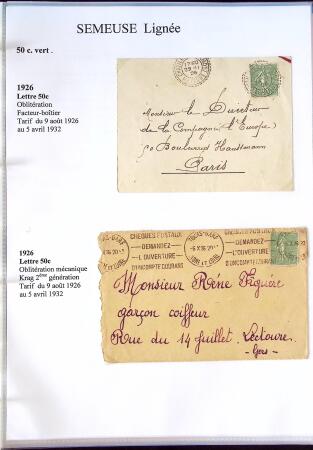 SEMEUSE Lignée
50 c. vert .
1926
Lettre 50c
Oblitération
Facteur-boîtier
Tarif du 9 août 1926
au 5 avril 1932
Monsieur le Directeur
de la Compagnie l'Europe
50 Boulevard Haussmann
Paris
1926
Lettre 50c
Oblitération mécanique
Krag 2ème génération
Tarif du 9 août 1926
au 5 avril 1932
CHEQUES POSTAUX
DEMANDEZ
L'OUVERTURE
D'UN COMPTE COURANT
CHEQUES POSTAUX
DEMANDEZ
L'OUVERTURE
D'UN COMPTE COURANT
Monsieur Réné Figuère
garçon coiffeur
Rue du 14 Juillet. Lectoure.
Gers